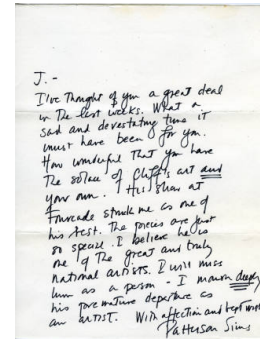 J. -
I've Thought of you a great deal
in The last weeks. What a
sad and devastating time it
must have been for you.
How wonderful That you have
The solace of Cliff's art and
your own. His show at
Fourcade struck me as one of
his best. The pieces are just
so special. I believe he is
one of The great and truly
national artists. I will miss
him as a person - I mourn deeply
his premature departure as
an artist. With affection and
Patterson Sims